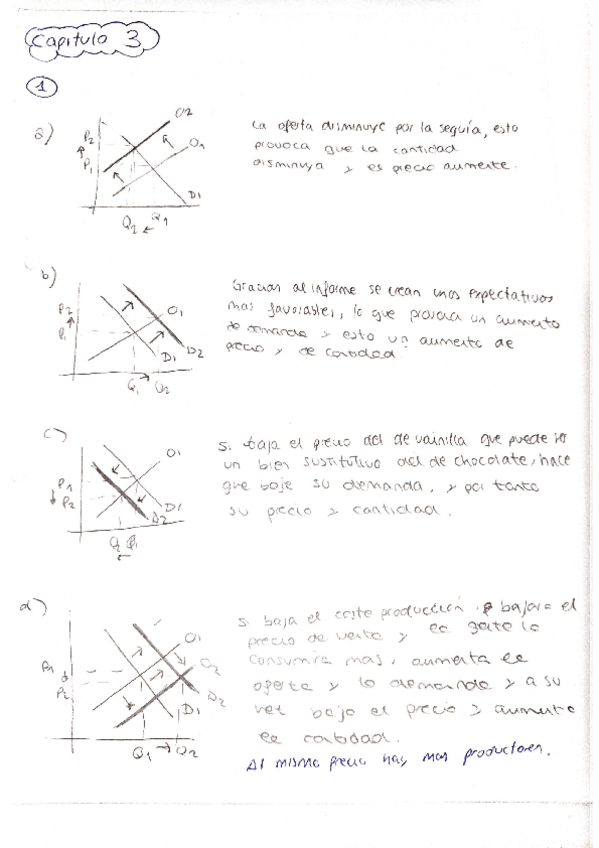 Capitulo 3
1
a)
P2
P1
O2
O1
D1
Q2 ← Q1
La oferta disminuye por la seguía, esto
provoca que la cantidad
disminuya y es precio aumente.
b)
P2
P1
O1
D1
D2
Q1 → Q2
Gracias al informe se crean unos expectativos
mas favorables, lo que provoca un aumento
de demanda y esto un aumento de
precio y de cantidad
c)
P1
↓ P2
O1
D1
D2
Q Q1
←
Si baja el precio del de vainilla que puede
un bien sustitutivo del de chocolate, hace
que baje su demanda, y por tanto
su precio y cantidad.
d)
P1
P2
O1
O2
D1
D2
Q1 → Q2
Si baja el coste producción bajara el
precio de venta y la gente lo
consumira mas, aumenta la
oferta y la demanda y a su
vez baja el precio y aumenta
la cantidad.
Al mismo precio hay mas productores.